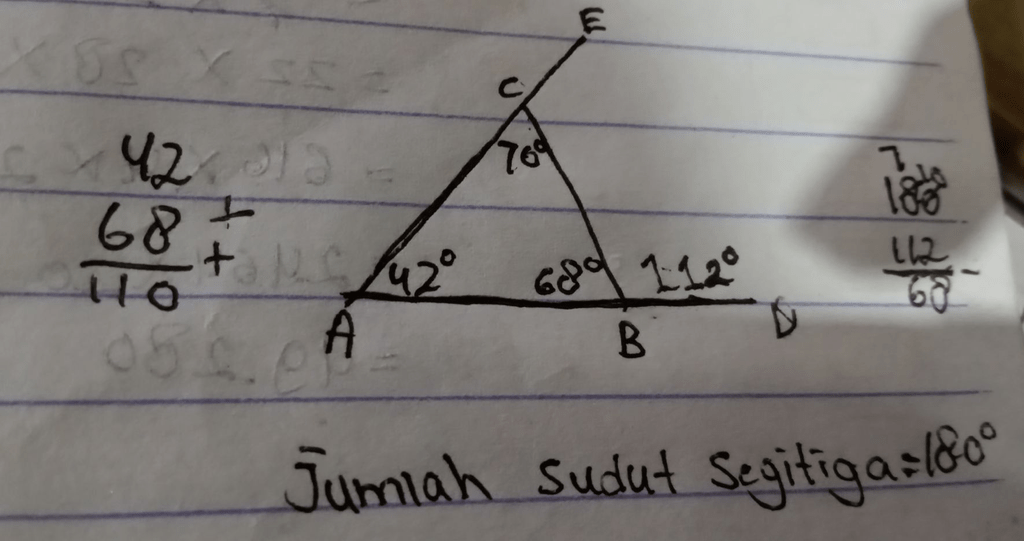 E
C
70°
42
68 +
+
110
42° 68° 112°
A B D
7 10
180
112 -
68
Jumlah sudut segitiga=180°